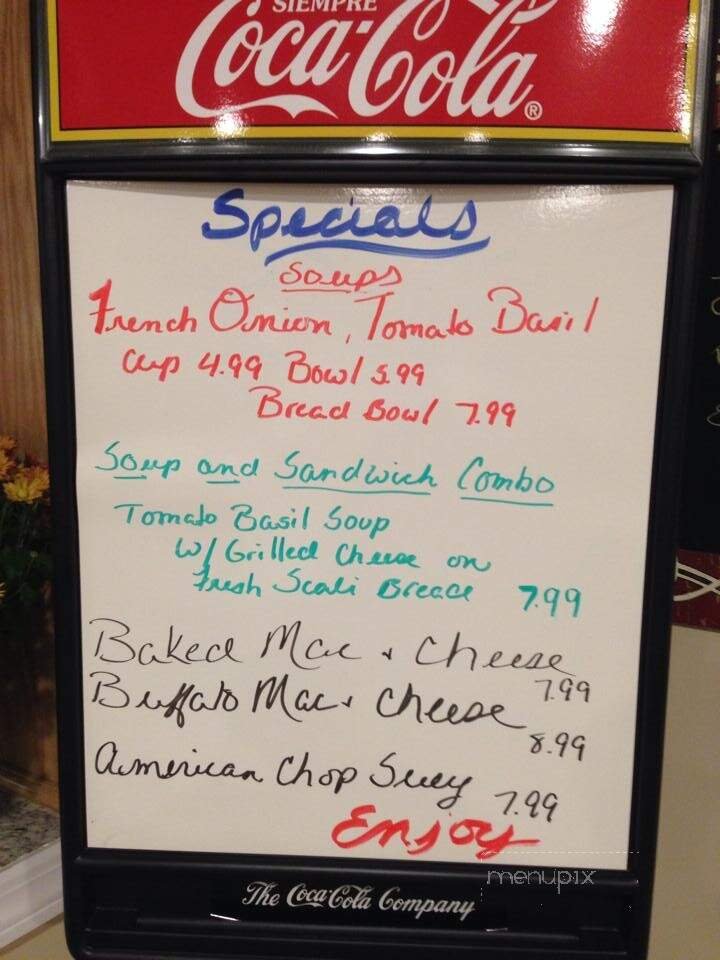 SIEMPRE
Coca-Cola®
Specials
Soups
French Onion, Tomato Basil
Cup 4.99 Bowl 5.99
Bread Bowl 7.99
Soup and Sandwich Combo
Tomato Basil Soup
w/ Grilled Cheese on
Fresh Scali Bread 7.99
Baked Mac + Cheese
7.99
Buffalo Mac + Cheese
8.99
American Chop Suey 7.99
Enjoy
menupix
The Coca-Cola Company